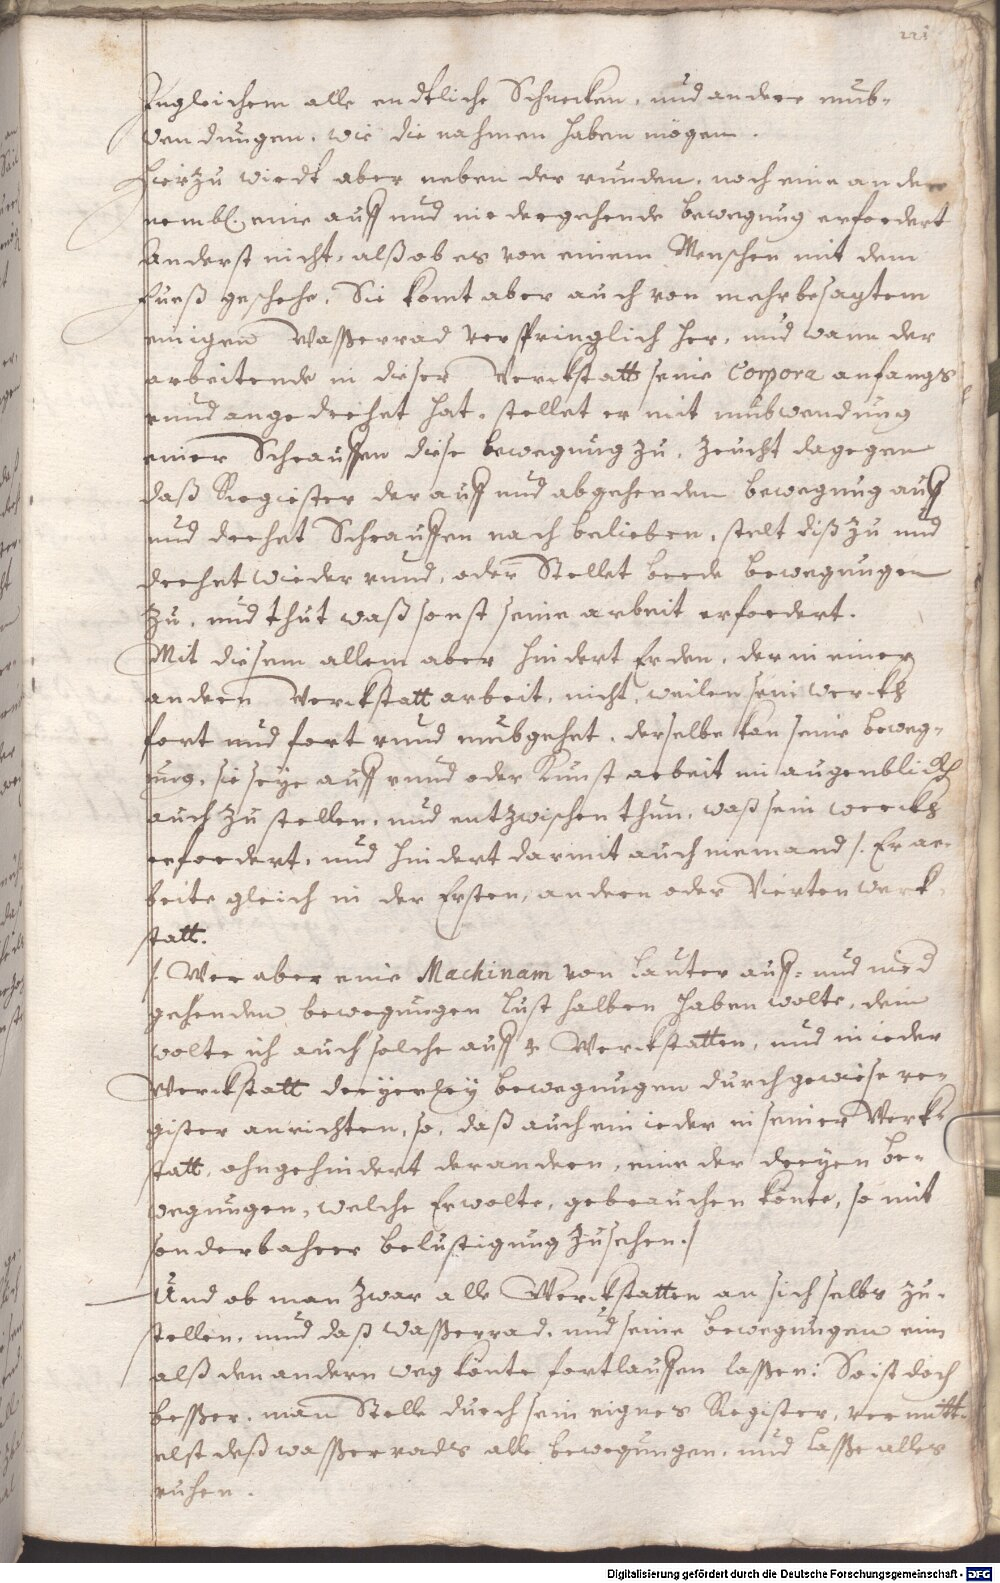 221
Ingleichem alle endtliche Schnecken, und andere umb-
wendungen, wie die nahmen haben mögen.
Hierzu wirdt aber neben der runden, noch eine andere
nembl. eine auff und niedergehende bewegung erfordert
Anderst nicht, alß ob es von einem Menschen mit dem
fueß geschehe, Sie komt aber auch von mehrbesagtem
einigen Wasserrad ursprünglich her, und wann der
arbeitende in dieser Werckstatt seine Corpora anfangs
rund angedrehet hat, stellet er mit umbwendung
einer Schrauffen diese bewegung zu, zeucht dagegen
daß Register der auff und abgehenden bewegung auff
und drehet Schrauffen nach belieben, stelt diß zu und
drehet wieder rund, oder Stellet beede bewegungen
zu, und thut waß sonst seine arbeit erfordert.
Mit diesem allem aber hindert Er den, der in einer
andern Werckstatt arbeit, nicht, weilen sein werckh
fort und fort rund umbgehet, derselbe kan seine beweg-
ung, sie seye auff rund oder Kunst arbeit im augenblickh
auch zu stellen, und entzwischen thun, waß sein werckh
erfordert, und hindert darmit auch niemand /. Er ar-
beite gleich in der Ersten, andern oder Vierten werk-
statt.
/. Wer aber eine Machinam von lauter auff- und nied
gehenden bewegungen lust halben haben wolte, dem
wolte ich auch solche auff 4 Werckstatten, und in ieder
Werckstatt dreyerley bewegungen durch gewise re-
gister anrichten, so, daß auch ein ieder in seiner Werk-
statt, ohngehindert der andern, eine der dreyen be-
wegungen, welche Er wolte, gebrauchen könte, so mit
sonderbahrer belustigung zu sehen./
Und ob man zwar alle Werckstatten an sich selbs zu-
stellen, und daß Wasserrad, und seine bewegungen ein
alß den andern weg könte fortlauffen lassen: So ist doch
besser, man Stelle durch sein eignes Register, vermitt-
elst deß wasserrads alle bewegungen, und lasse alles
ruhen.
Digitalisierung gefördert durch die Deutsche Forschungsgemeinschaft - DFG